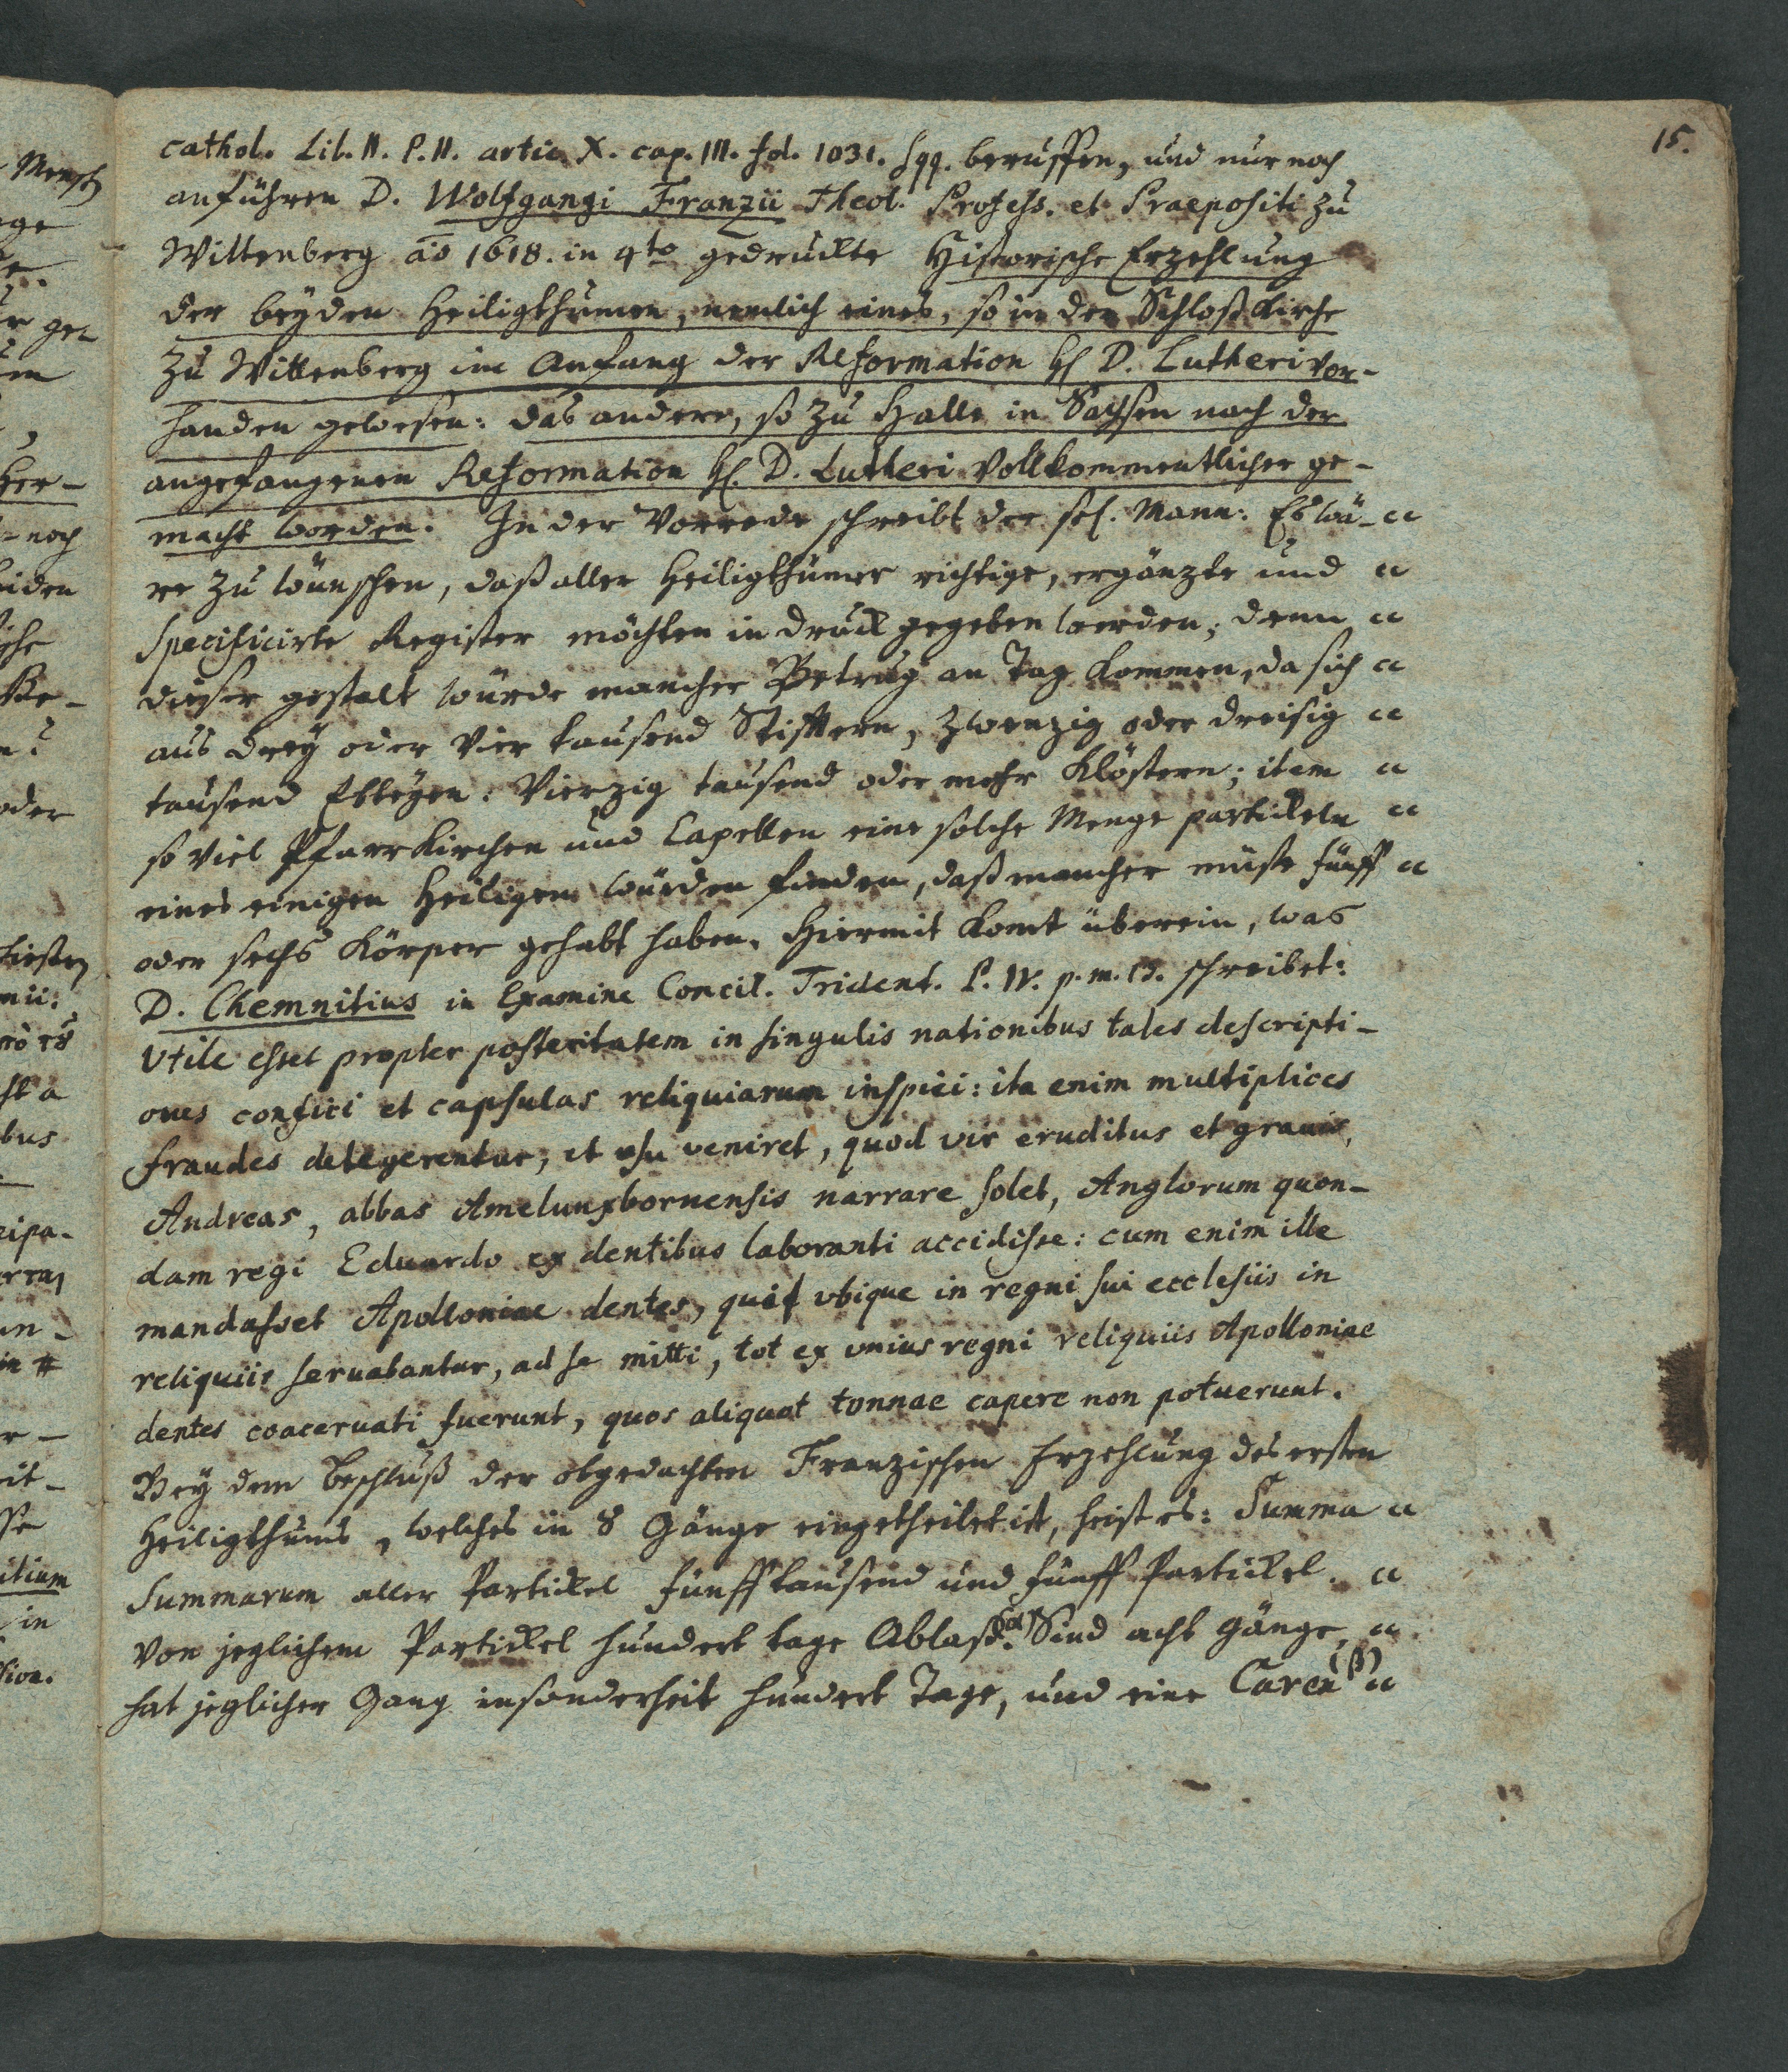 15.
cathol. Lib. II. P. II. artic. X. cap. III. fol. 1031. sqq. beruffen, und nur noch
anführen D. Wolfgangi Franzii Theol. Profess. et Praepositi zu
Wittenberg aō 1618. in 4to gedruckte Historische Erzehlung
der beyden Heiligthümen, nemlich eines, so in der Schloßkirche
zu Wittenberg im Anfang der Reformation H. D. Lutheri vor-
handen gewesen: das andere, so zu Halle in Sachsen nach der
angefangenen Reformation H. D. Lutheri vollkommentlicher ge-
macht worden. In der Vorrede schreibt der sel. Mann: Es wä- "
re zu wünschen, daß aller Heiligthümer richtige, ergänzte und "
specificirte Register möchten in druck gegeben werden; denn "
dieser gestalt würde mancher Betrug an Tag kommen, da sich "
aus drey oder vier tausend Stifftern, zwenzig oder dreisig "
tausend Ebteyen: vierzig tausend oder mehr Klöstern; item "
so viel Pfarrkirchen und Capellen eine solche Menge partickeln "
eines einigen Heiligen würden finden, daß mancher müste fünff "
oder sechs Körper gehabt haben. Hiermit komt überein, was
D. Chemnitius in Examine Concil. Trident. P. IV. p. m. 13. schreibet:
Vtile esset propter posteritatem in singulis nationibus tales descripti-
ones confici et capsulas reliquiarum inspici: ita enim multiplices
fraudes detegerentur, et usu veniret, quod vir eruditus et grauis,
Andreas, abbas Amelunxbornensis narrare solet, Anglorum quon-
dam regi Eduardo ex dentibus laboranti accidisse: cum enim ille
mandasset Apolloniae dentes, qui vbique in regni sui ecclesiis in
reliquiis seruabantur, ad se mitti, tot ex vnius regni reliquiis Apolloniae
dentes coaceruati fuerunt, quos aliquot tonnae capere non potuerunt.
Bey dem Beschluß der obgedachten Franzischen Erzehlung des ersten
Heiligthums, welches in 8 Gänge eingetheilet ist, heist es: Summa "
Summarum aller Partickel fünfftausend und fünff Partickel. "
von jeglichem Partickel hundert tage Ablaß.(α) Sind acht Gänge, "
hat jeglicher Gang insonderheit hundert Tage, und eine Caren(β) "